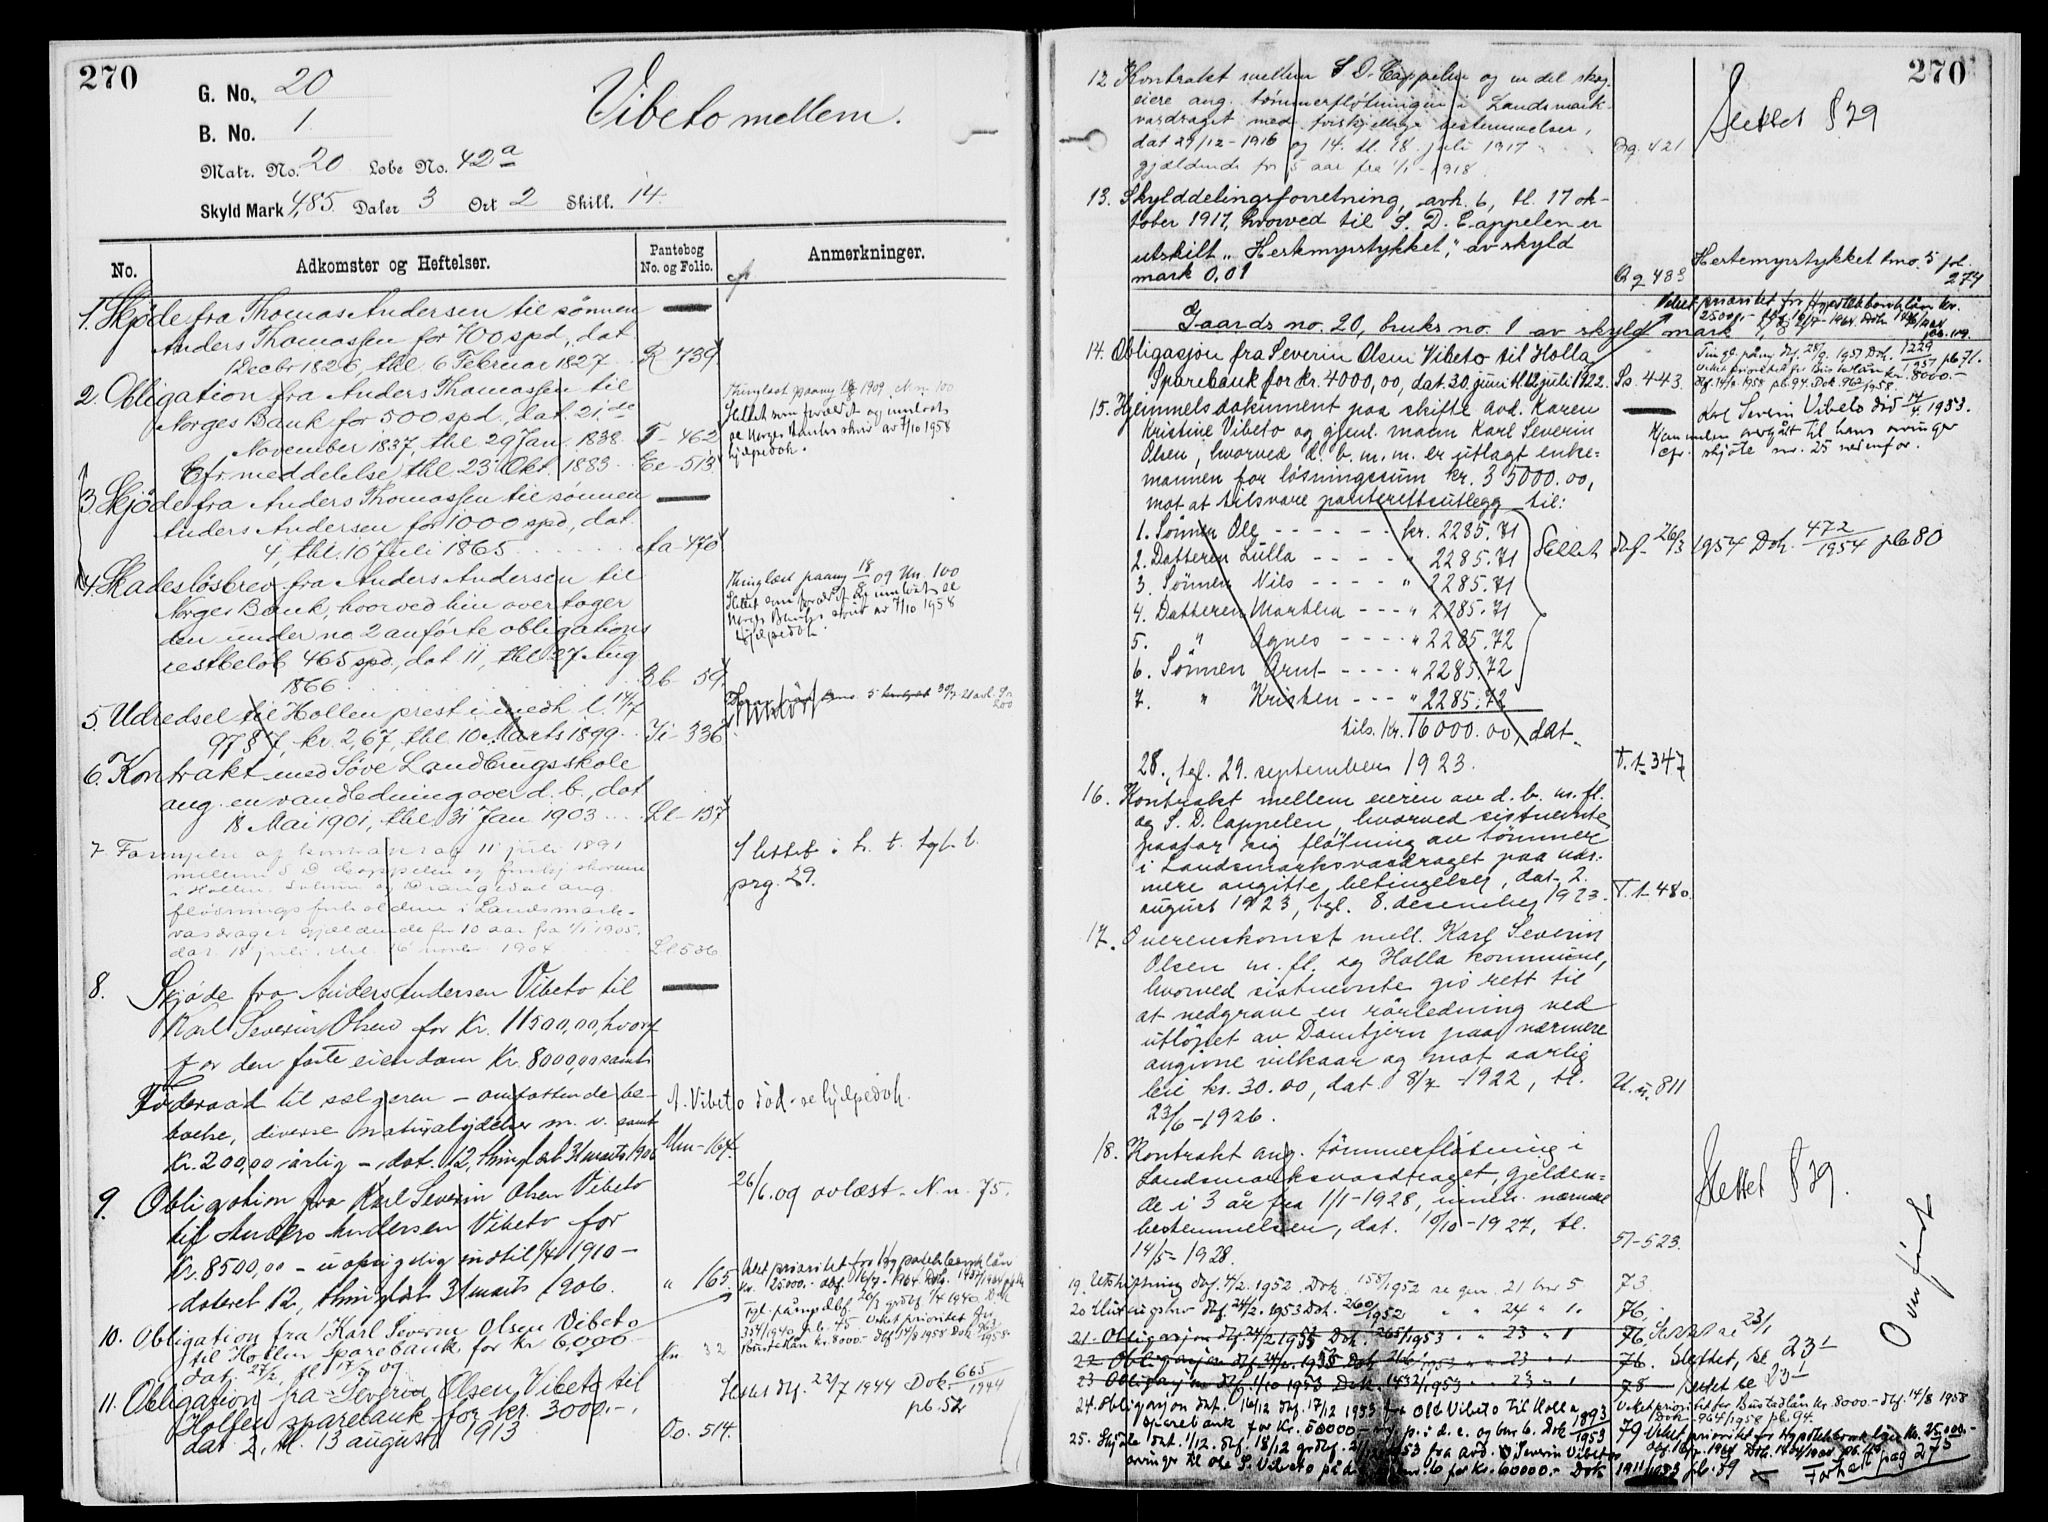 270
G. No. 20
B. No. 1
Vibeto mellem.
Matr. No. 20 Løbe No. 42a
Skyld Mark 4,85 Daler 3 Ort 2 Skill. 14
No.
Adkomster og Heftelser.
Pantebog
No. og Folio.
Anmerkninger.
1. Skjøde fra Thomas Andersen til sønnen
Anders Thomassen for 700 spd, dat
1 Decbr 1826, thl. 6 Februar 1827 R 739
2. Obligation fra Anders Thomassen til
Norges Bank for 500 spd, dat. 21de
November 1837, thl 29 Jan. 1838. T-462
Cfr. meddelelse, thl 23 Okt. 1883 Ee-513
Thinglæst paany 1909. N.n. 100
Slettet som forældet og innløst
se Norges Banks skriv av 7/10 1958
hjelpedok.
3. Skjøde fra Anders Thomassen til sønnen
Anders Andersen for 1000 spd, dat.
4, thl. 10 Juli 1865 Aa-470
4. Skadesløsbrev fra Anders Andersen til
Norges Bank, hvorved hin overtager
den under no 2 anførte obligations
restbeløb 465 spd., dat 11, thl 27 Aug
1866 Bb-59
Thinglæst paany 18/8 09 Nn. 100
Slettet som forældet og innløst se
Norges Banks skriv av 7/10 1958
Hjelpedok.
5. Udredsel til Hollen prest i medh. l. 14/7
97 § 7, kr. 2,67, thl. 10 Marts 1899 Ii-336
6. Kontrakt med Søve Landbrugsskole
ang. en vandledning over d. b., dat
18 Mai 1901, thl. 31 Jan 1903 Ll-137
7. Fornyelse af kontrakt af 11 juli 1891
mellem S D Cappelen og
i Hollen, Lunde og Drangedal ang.
fløtningsforholdene i Landsmark-
vasdraget gjældende for 10 aar fra 1/1 1905.
dat. 18 juli, thl. 16 novbr. 1904 Ll 536
Slettet i h. t. tgl. l.
prg. 29.
8. Skjøde fra Anders Andersen Vibeto til
Karl Severin Olsen for Kr. 11500,00, hvoraf
for den faste eiendom Kr. 8000,00 samt
Føderaad til sælgeren – omfattende be-
boelse, diverse naturalydelser m. v. samt
Kr. 200,00 årlig – dat. 12, thinglæst 31 marts 1906 Mm-164.
A. Vibeto død - se hjelpedok.
9. Obligation fra Karl Severin Olsen Vibeto
til Anders Andersen Vibeto for
Kr. 8500,00 – uopsigelig indtil 1/4 1910 –
dateret 12, thinglæst 31 marts 1906. " 165.
26/6.09 avlæst. N.n. 75.
10. Obligation fra Karl Severin Olsen Vibeto
til Hollen sparebank for Kr 6,000
dat. 27/2, tl. 17/3 09 Nn. 32
Veket prioritet for Hypotekbanklån
kr. 25000.- dbf. 16/7-1964 Dok. 1437/1964
11. Obligation fra Severin Olsen Vibeto til
Hollen sparebank for kr. 3000.-,
dat 2, tl. 13 august 1913 Oo. 514.
Slettet dbf. 22/7 1944 Dok. 665/1944
pb. 52
270
12 Kontrakt mellem S D. Cappelen og en del skog
eiere ang. tømmerfløtningen i Landsmark-
vasdraget med forskjellige bestemmelser,
dat 29/12-1916 og 14. tl. 18. juli 1917
gjældende for 5 aar fra 1/1-1918. Qq. 421
Slettet § 29
13. Skylddelingsforretning, avh. 6, tl. 17 ok-
tober 1917, hvorved til S. D. Cappelen er
utskilt „Herkmyrstykket", av skyld
mark 0,01 Qq 483
Hertemyrstykket bno. 5 fol.
274
Gaards no. 20, bruks no. 1 av skyld mark
14. Obligasjon fra Severin Olsen Vibeto til Holla
Sparebank for kr. 4000,00, dat. 30. juni tl. 12 juli 1922. Ss. 443.
15. Hjemmelsdokument paa skifte avd. Karen
Kristine Vibeto og gjenl. mann Karl Severin
Olsen, hvorved d. b. m. m. er utlagt enke-
mannen for løsningssum kr. 35000.00,
mot at tilsvare panterettsutlegg til:
Karl Severin Vibeto død 14/4 1953.
Hjemmelen overgått til hans arvinger
cfr. skjøte nr. 25 nedenfor.
1. Sønnen Ole - - - - - kr. 2285.71
2. Datteren Lulla - - - - " 2285.71
3. Sønnen Nils - - - - " 2285.71
4. Datteren Martha - - - " 2285.71
5. " Agnes - - - - " 2285.72
6. Sønnen Arnt - - - - " 2285.72
7. " Kristen - - - " 2285.72
Slettet dbf. 26/3 1954 Dok. 472/1954 pb 80
tils. kr. 16000.00, dat.
28., tgl. 29. september 1923. T.t-347
16. Kontrakt mellem eieren av d. b. m. fl.
og S. D. Cappelen, hvorved sistnevnte
paatar sig fløtning av tømmer
i Landsmarksvasdraget paa nær-
mere angitte betingelser, dat. 2.
august 1923, tgl. 8. desember 1923. T.t-480
17. Overenskomst mell. Karl Severin
Olsen m. fl. og Holla kommune,
hvorved sistnevnte gis rett til
at nedgrave en rørledning ved
utløpet av Damtjern paa nærmere
angivne vilkaar og mot aarlig
leie kr. 30.00, dat. 8/7-1922, tl.
23/6-1926. U.u. 811
18. Kontrakt ang. tømmerfløtning i
Landsmarksvasdraget, gjelden-
de i 3 år fra 1/1-1928, innen nærmere
bestemmelser, dat. 19/10-1927, tl.
14/5-1928. 51-523.
Slettet § 29.
Overført
19. Utskiftning dbf. 4/2. 1952. Dok. 158/1952 se gnr. 21 bnr 5. 73.
20 dbf. 24/2. 1953 Dok. 260/1952 " " 24 " 10 76.
21. Obligasjon dbf. 24/2 1953 Dok. 265/1953 " " 23 " 1 76. Slettet se 23/1
22 Obligasjon dbf. 24/2. 1953 Dok " 23 " 1 76. Slettet, se 23-1
23 Obligasjon dbf. 1/10 1953 Dok. 1432/1953 " 23 " 1 78 Slettet se 23-1
24. Obligasjon dat. 16/12 dbf. 17/12 1953 fra Olav Vibeto til Holla
Sparebank for Kr. 50000- p. i d. e. og bnr 6. Dok 1893/1953 79
Veket prioritet for Bustadlån kr. 8000- dbf. 14/8 1958
Dok. 964/1958 pb. 94.
25. Skjøte dat. 1/12. dbf. 18/12 1953 fra avd. Severin Vibetos
arvinger til Ole S. Vibeto på d. e. og bnr. 6 for Kr. 60000.- Dok 1911/1953 pb. 79
Forts. pag 275